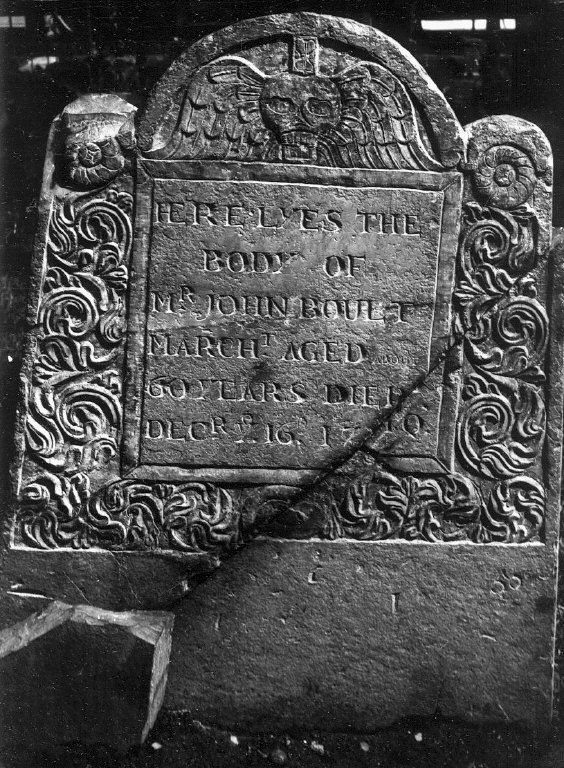 HERE LYES THE
BODY OF
Mᴿ JOHN BOULT
MARCHᵀ AGED ABOUT
60 YEARS DIED
DECᴿ Yᴱ 16